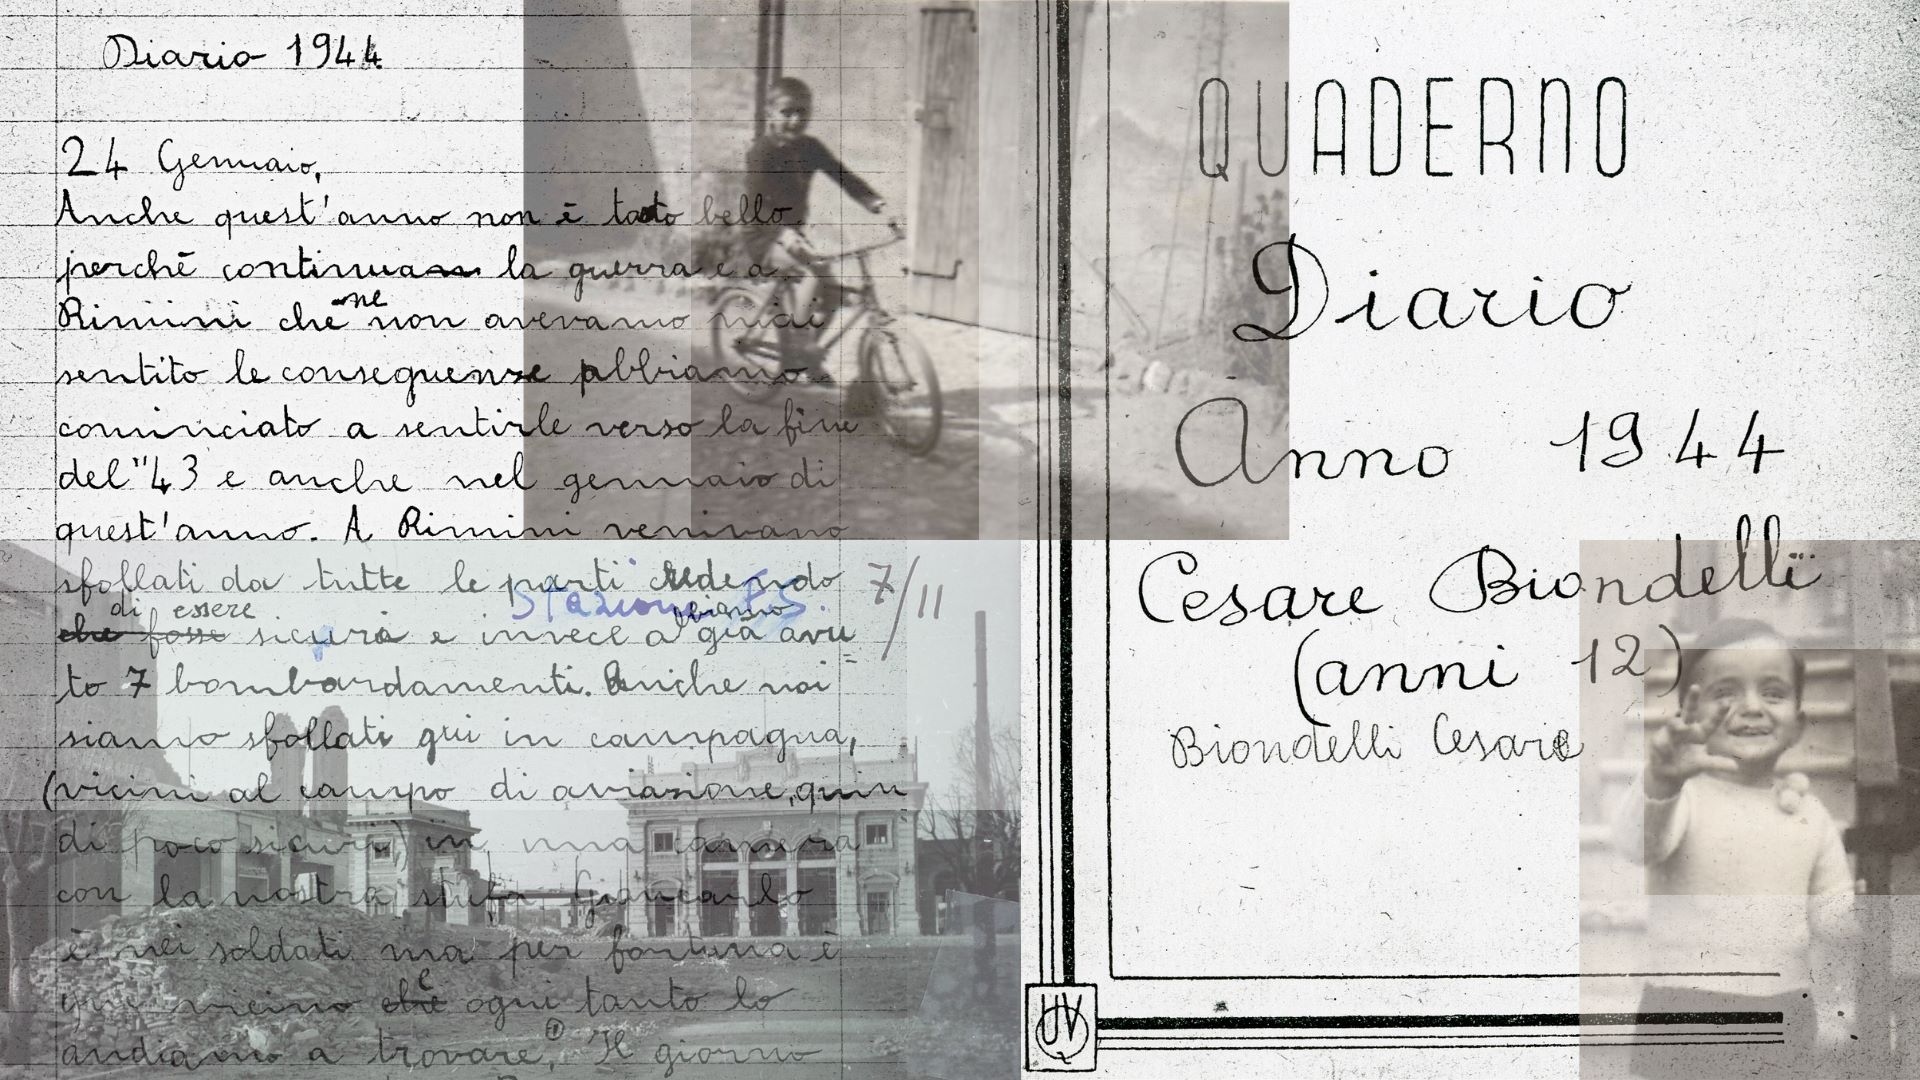 Diario 1944
24 Gennaio,
Anche quest'anno non è tato bello
perchè continua la guerra e a
Rimini che ne non avevamo mai
sentito le conseguenze abbiamo
cominciato a sentirle verso la fine
del "43 e anche nel gennaio di
quest'anno. A Rimini venivano
sfollati da tutte le parti credendo
di essere
che fosse sicura e invece abbiamo già avu
to 7 bombardamenti. Anche noi
siamo sfollati qui in campagna,
(vicini al campo di aviazione, quin
di poco sicuri) in una camera
con la nostra stufa. Giancarlo
è nei soldati ma per fortuna è
qui vicino che e ogni tanto lo
andiamo a trovare. (1) Il giorno
Stazione F.S.
7/11
QUADERNO
Diario
Anno 1944
Cesare Biondelli
(anni 12)
Biondelli Cesare
UVQ